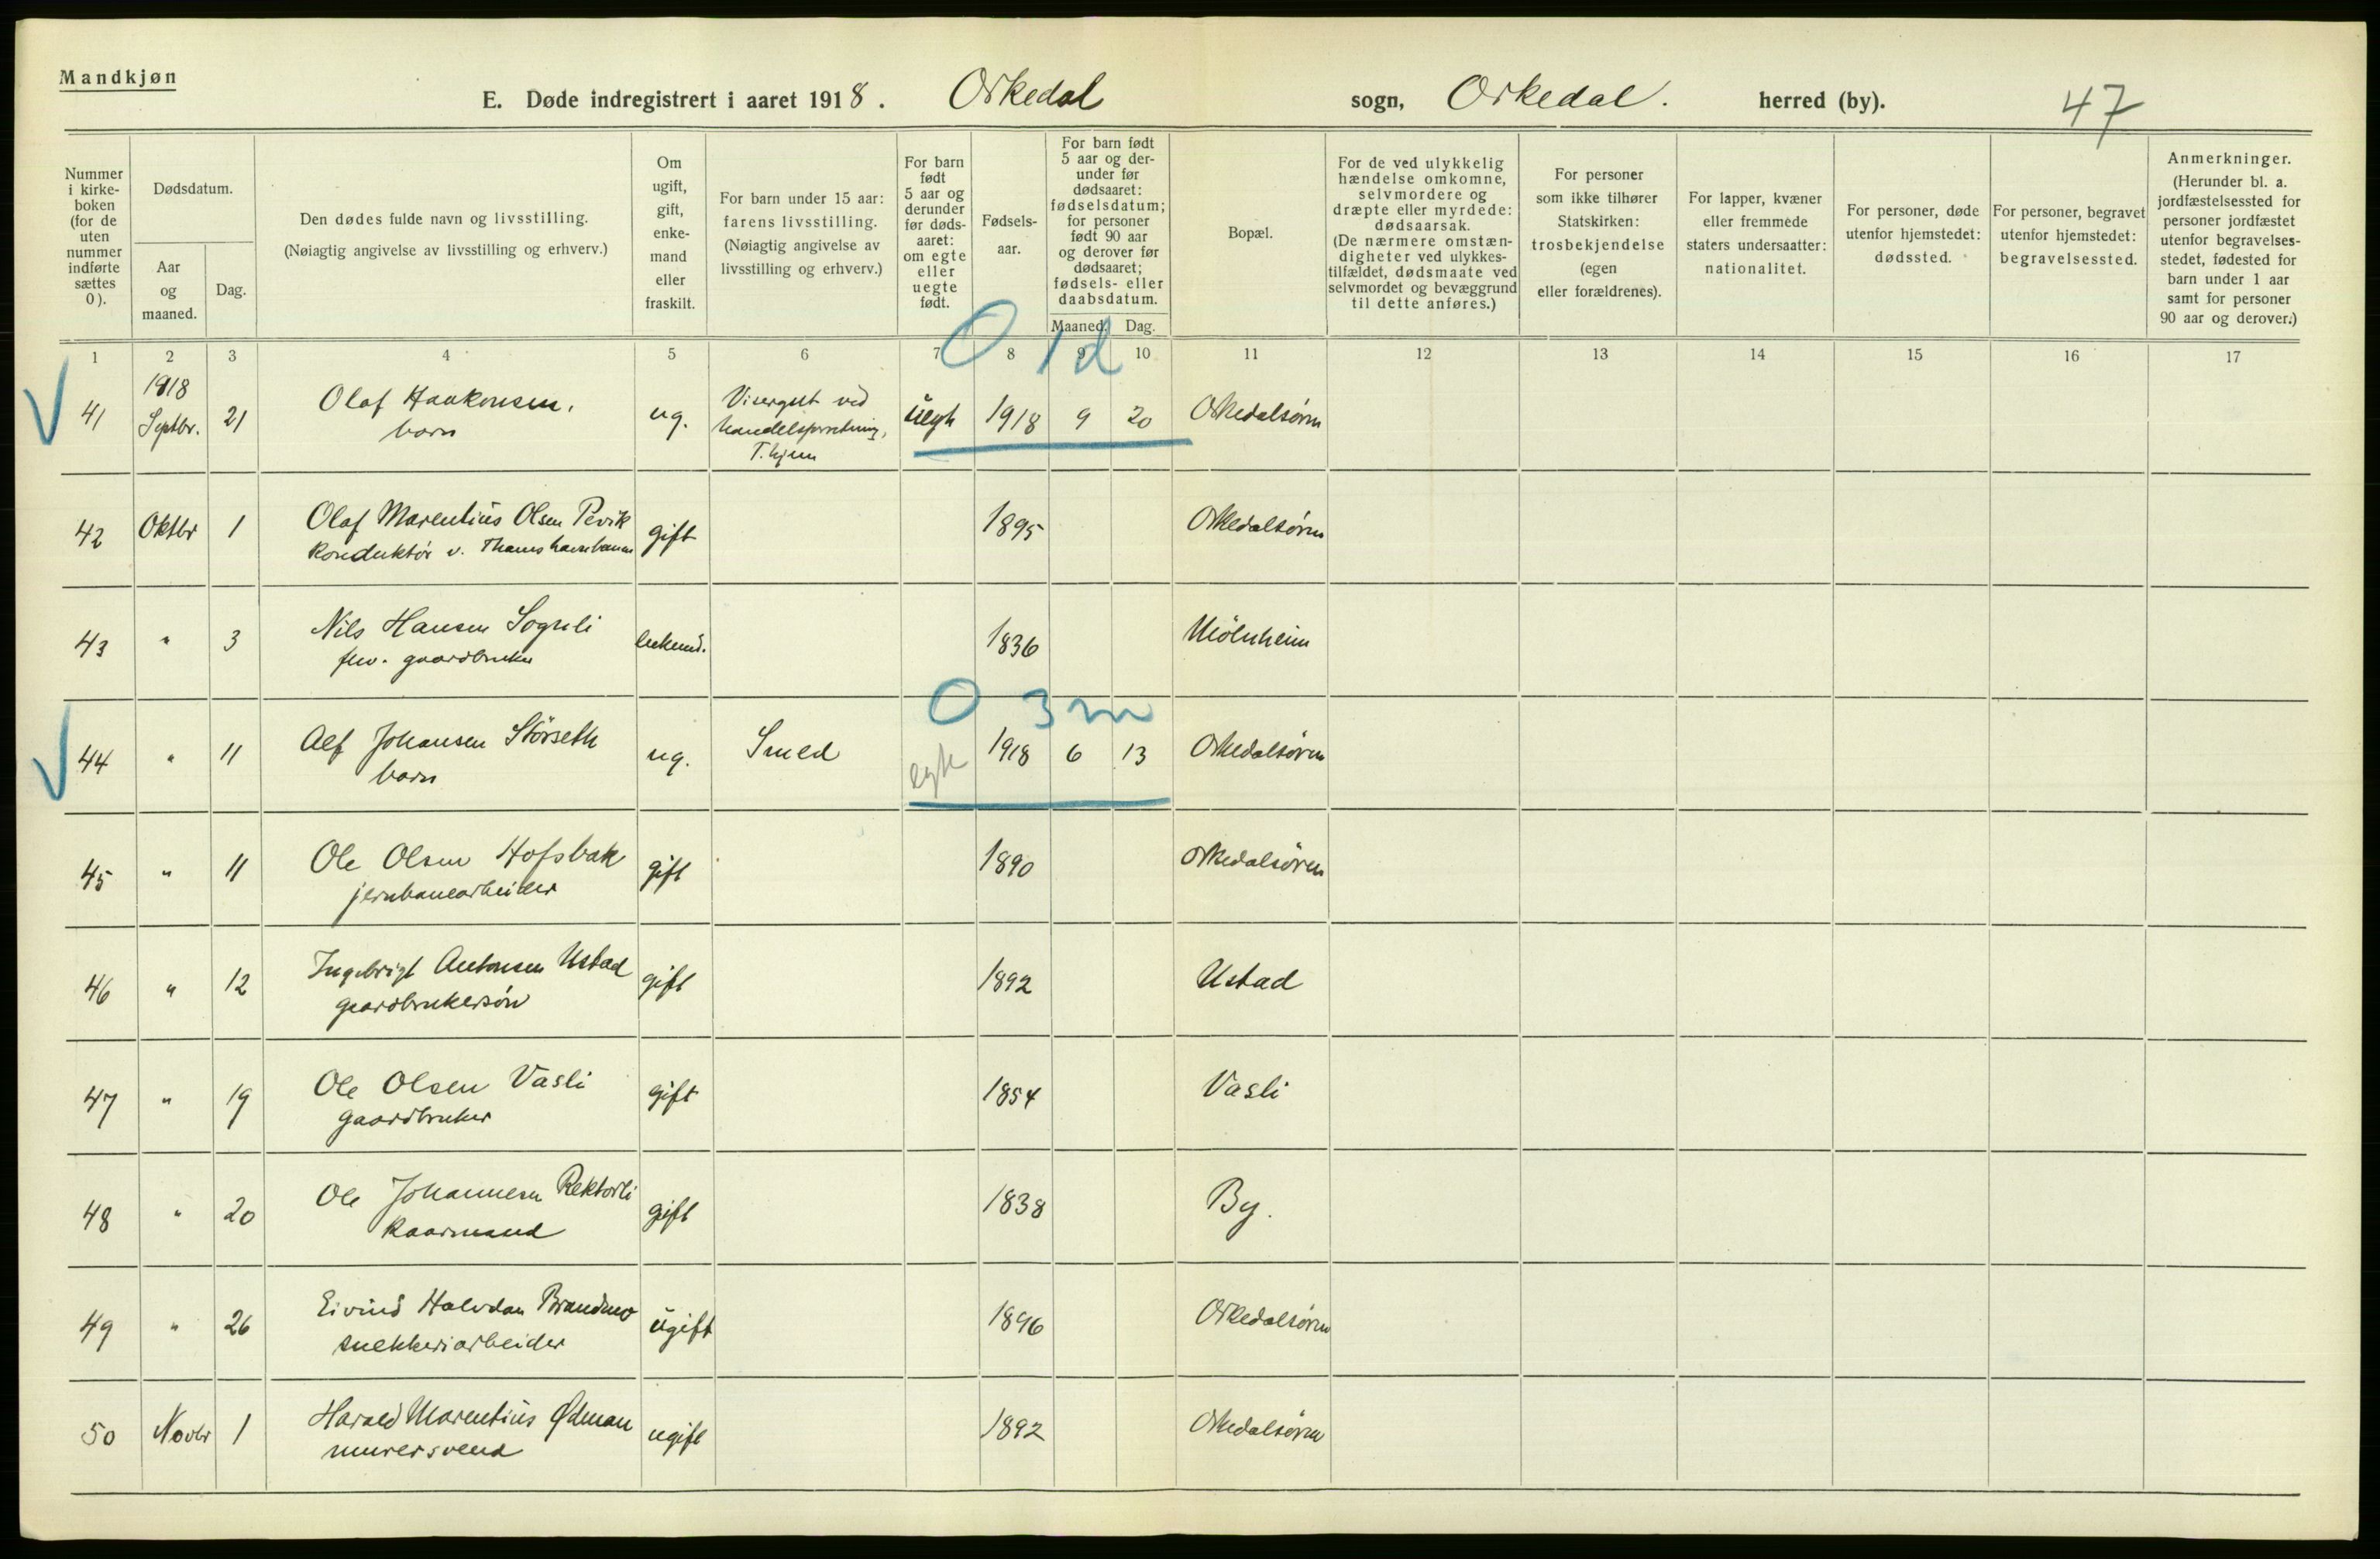 Mandkjøn
E. Døde indregistrert i aaret 1918. Orkedal sogn, Orkedal. herred (by). 47
Nummer
i kirke-
boken
(for de
uten
nummer
indførte
sættes
0).
Dødsdatum.
Aar
og
maaned.
Dag.
Den dødes fulde navn og livsstilling.
(Nøiagtig angivelse av livsstilling og erhverv.)
Om
ugift,
gift,
enke-
mand
eller
fraskilt.
For barn under 15 aar:
farens livsstilling.
(Nøiagtig angivelse av
livsstilling og erhverv.)
For barn
født
5 aar og
derunder
før døds-
aaret:
om egte
eller
uegte
født.
Fødsels-
aar.
For barn født
5 aar og der-
under før
dødsaaret:
fødselsdatum;
for personer
født 90 aar
og derover før
dødsaaret;
fødsels- eller
daabsdatum.
Maaned. Dag.
Bopæl.
For de ved ulykkelig
hændelse omkomne,
selvmordere og
dræpte eller myrdede:
dødsaarsak.
(De nærmere omstæn-
digheter ved ulykkes-
tilfældet, dødsmaate ved
selvmordet og bevæggrund
til dette anføres.)
For personer
som ikke tilhører
Statskirken:
trosbekjendelse
(egen
eller forældrenes).
For lapper, kvæner
eller fremmede
staters undersaatter:
nationalitet.
For personer, døde
utenfor hjemstedet:
dødssted.
For personer, begravet
utenfor hjemstedet:
begravelsessted.
Anmerkninger.
(Herunder bl. a.
jordfæstelsessted for
personer jordfæstet
utenfor begravelses-
stedet, fødested for
barn under 1 aar
samt for personer
90 aar og derover.)
1 2 3 4 5 6 7 8 9 10 11 12 13 14 15 16 17
0 1d
1918
41 Septbr. 21 Olaf Haakonsen, ug. Visergut ved uegte 1918 9 20 Orkedalsøren
barn handelsforretning,
T.hjem
42 Oktbr 1 Olaf Marentius Olsen Pevik gift 1895 Orkedalsøren
Konduktør v. Thamshavnbanen
43 " 3 Nils Hansen Sognli enkemd. 1836 Mölnheim
fhv. gaardbruker
0 3m
44 " 11 Alf Johansen Störseth ug. Smed egte 1918 6 13 Orkedalsøren
barn
45 " 11 Ole Olsen Hofsbak gift 1890 Orkedalsören
jernbanearbeider
46 " 12 Ingebrigt Antonsen Ustad gift 1892 Ustad
gaardbrukersøn
47 " 19 Ole Olsen Vasli gift 1854 Vasli
gaardbruker
48 " 20 Ole Johannesen Rektorli gift 1838 By.
Kaarmand
49 " 26 Eivind Halvdan Brandmo ugift 1896 Orkedalsøren
snekkeriarbeider
50 Novbr 1 Harald Marentius Ødman ugift 1892 Orkedalsøren
murersvend